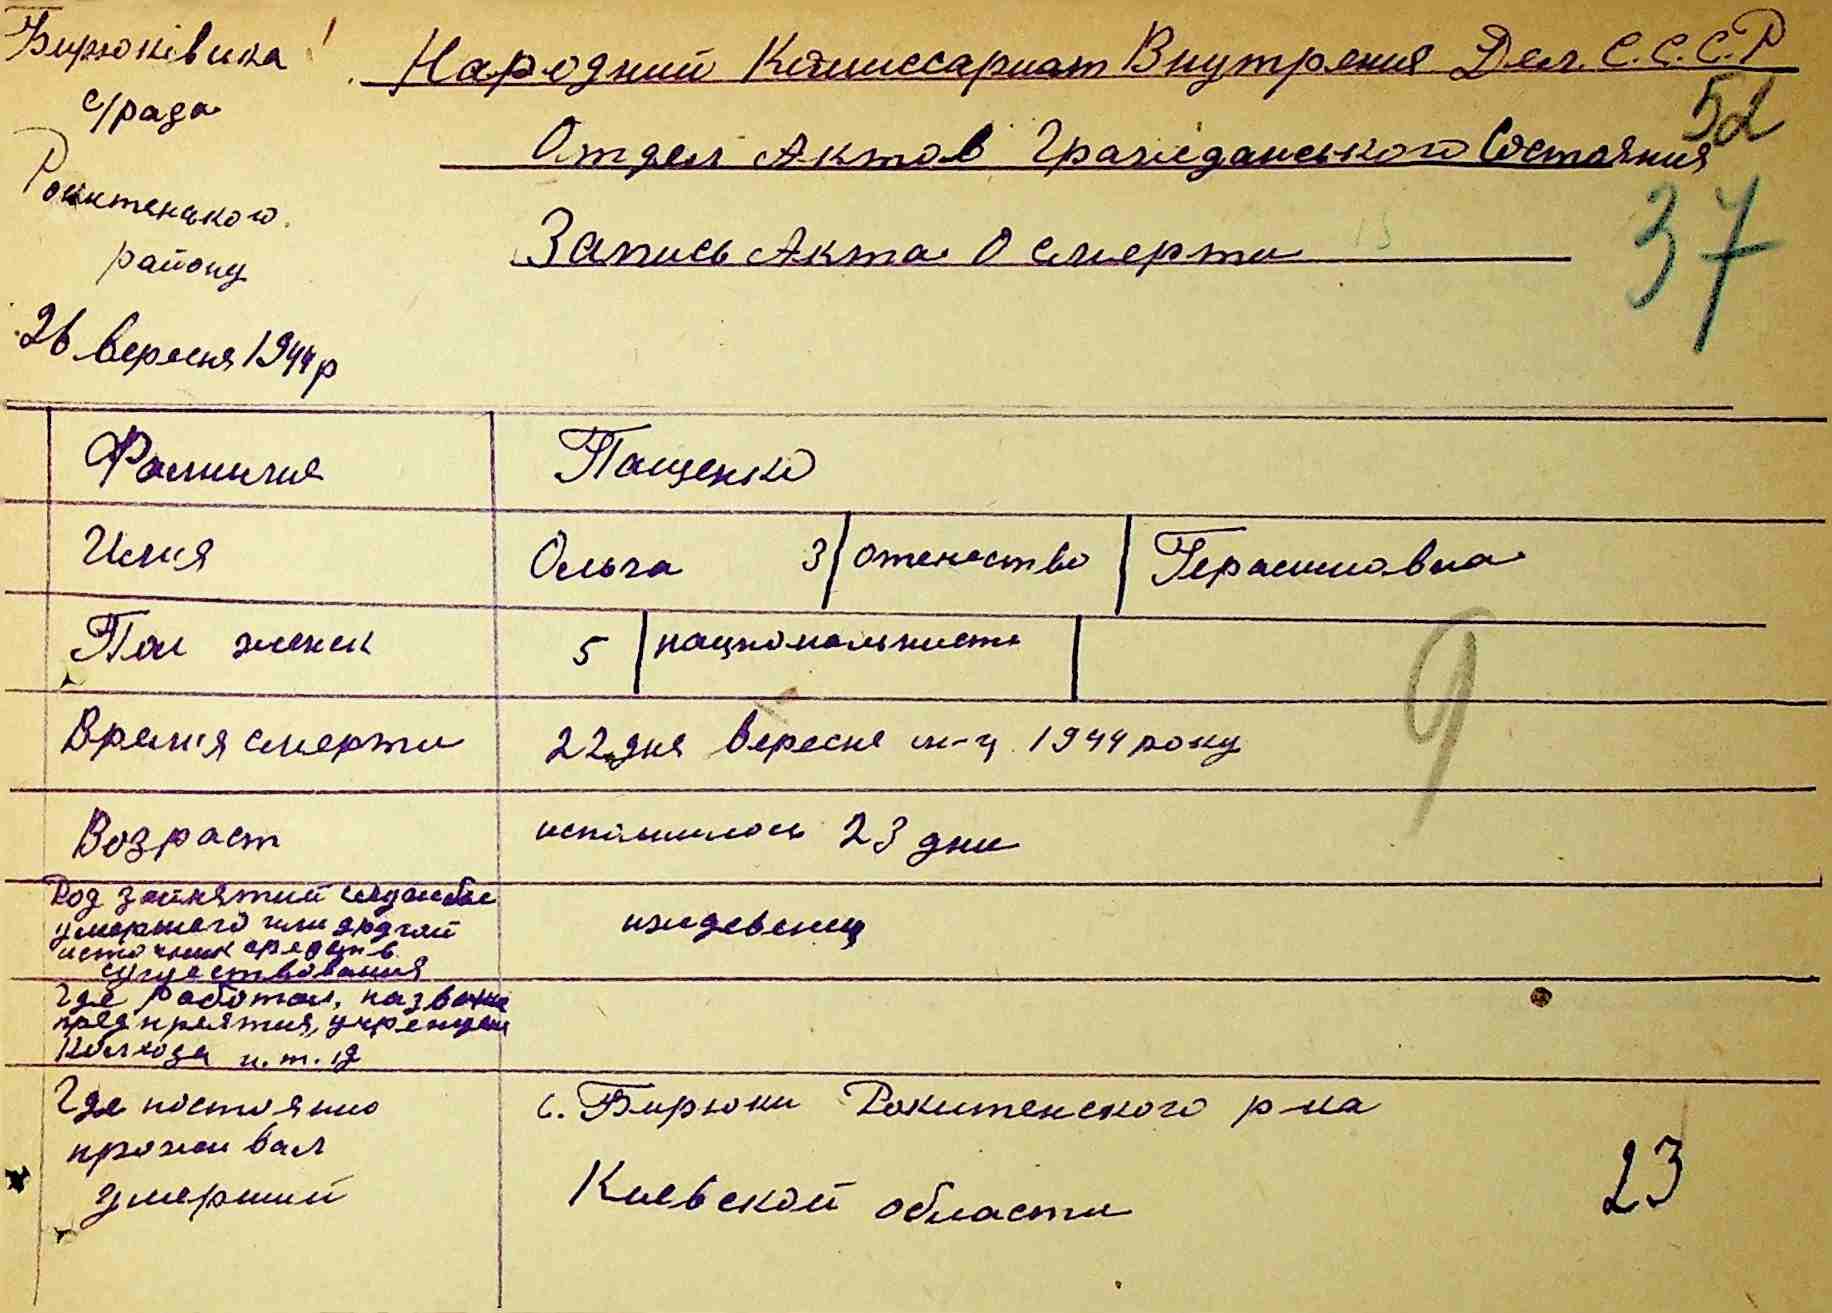 Бирюківська
с/рада
Рокитенського
району
26 вересня 1944 р
Народний Комиссариат Внутрения Дел. С.С.С.Р
52
Отдел Актов Гражданського Состояния
37
Запись Акта О смерти 15
Фамилия Пащенко
Имия Ольга 3 отечество Герасимовна
Пол женск 5 национальность
9
Времия смерти 22 дня вересня м-ц 1944 року
Возраст исполнилось 23 дни
Род занятий
умершего или другой
источник средств
существования
иждевенец
Где работал, названия
предприятия, учрежден
Колхоза и. т. д
Где постоянно
проживал
умерший
с. Бирюки Рокитенского р-на
Киевской области
23